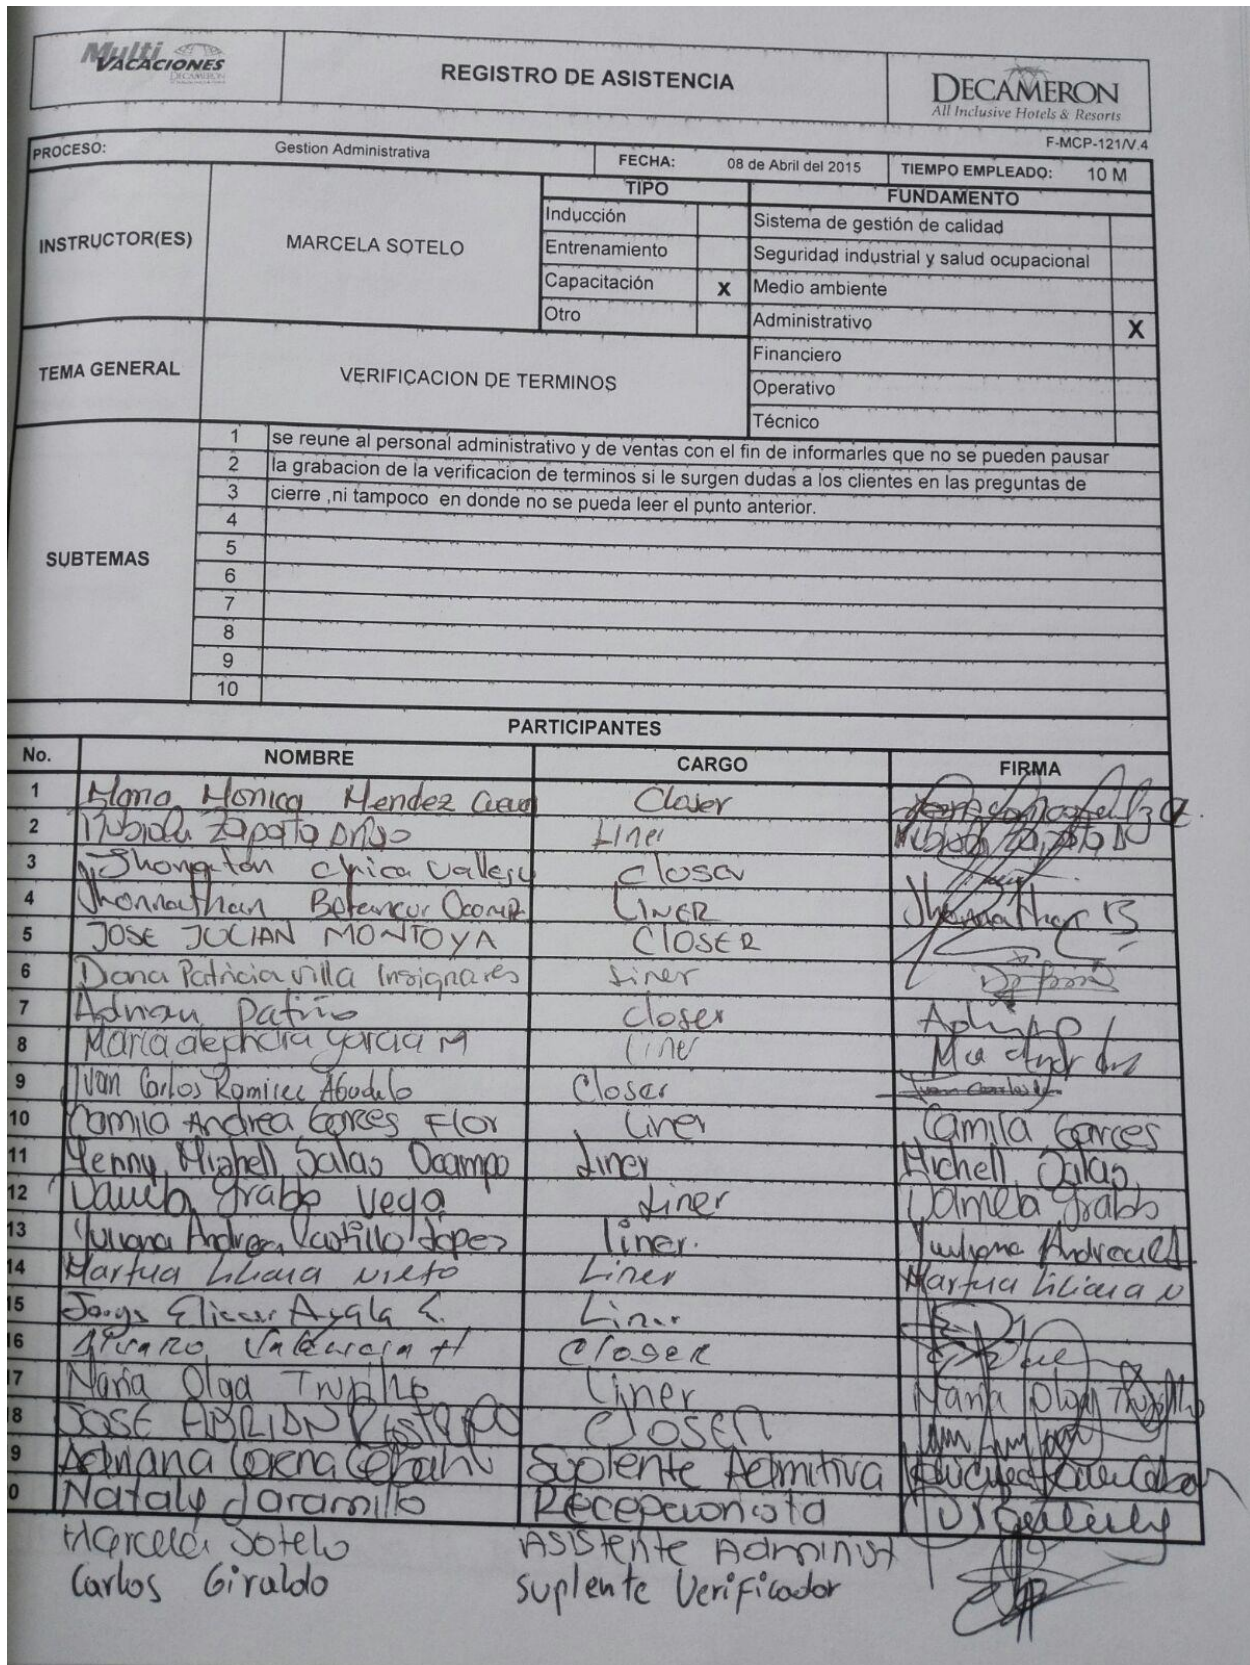 Multi VACACIONES DECAMERON
REGISTRO DE ASISTENCIA
DECAMERON
All Inclusive Hotels & Resorts
F-MCP-121/V.4
PROCESO: Gestion Administrativa FECHA: 08 de Abril del 2015 TIEMPO EMPLEADO: 10 M
TIPO FUNDAMENTO
INSTRUCTOR(ES) MARCELA SOTELO
Inducción
Entrenamiento
Capacitación X
Otro
Sistema de gestión de calidad
Seguridad industrial y salud ocupacional
Medio ambiente
Administrativo X
Financiero
Operativo
Técnico
TEMA GENERAL VERIFICACION DE TERMINOS
SUBTEMAS
1 se reune al personal administrativo y de ventas con el fin de informarles que no se pueden pausar
2 la grabacion de la verificacion de terminos si le surgen dudas a los clientes en las preguntas de
3 cierre ,ni tampoco en donde no se pueda leer el punto anterior.
4
5
6
7
8
9
10
PARTICIPANTES
No. NOMBRE CARGO FIRMA
1 Monica Mendez Closer
2 Zapata Liner
3 Chica Closer
4 Jhonnathan Betancur LINER Jhonnathan B
5 JOSE JULIAN MONTOYA CLOSER
6 Patricia Villa Insignares Liner
7 Adrian Patiño Closer
8 Maria alejandra Garcia M Liner
9 Carlos Ramirez Closer
10 Camila Andrea Garces Flor Liner Camila Garces
11 Yenny Mishell Salas Ocampo Liner Michell Salas
12 Vega Liner
13 Andrea Castillo Lopez Liner.
14 Liliana Nieto Liner
15 Ayala Liner
16 Valencia H Closer
17 Maria Olga Trujillo Liner Maria Olga Trujillo
8 JOSE ADRIAN CLOSER
9 Adriana Lorena Suplente Admitiva
0 Nataly Jaramillo Recepcionista
Marcela Sotelo Asistente Administ
Carlos Giraldo Suplente Verificador